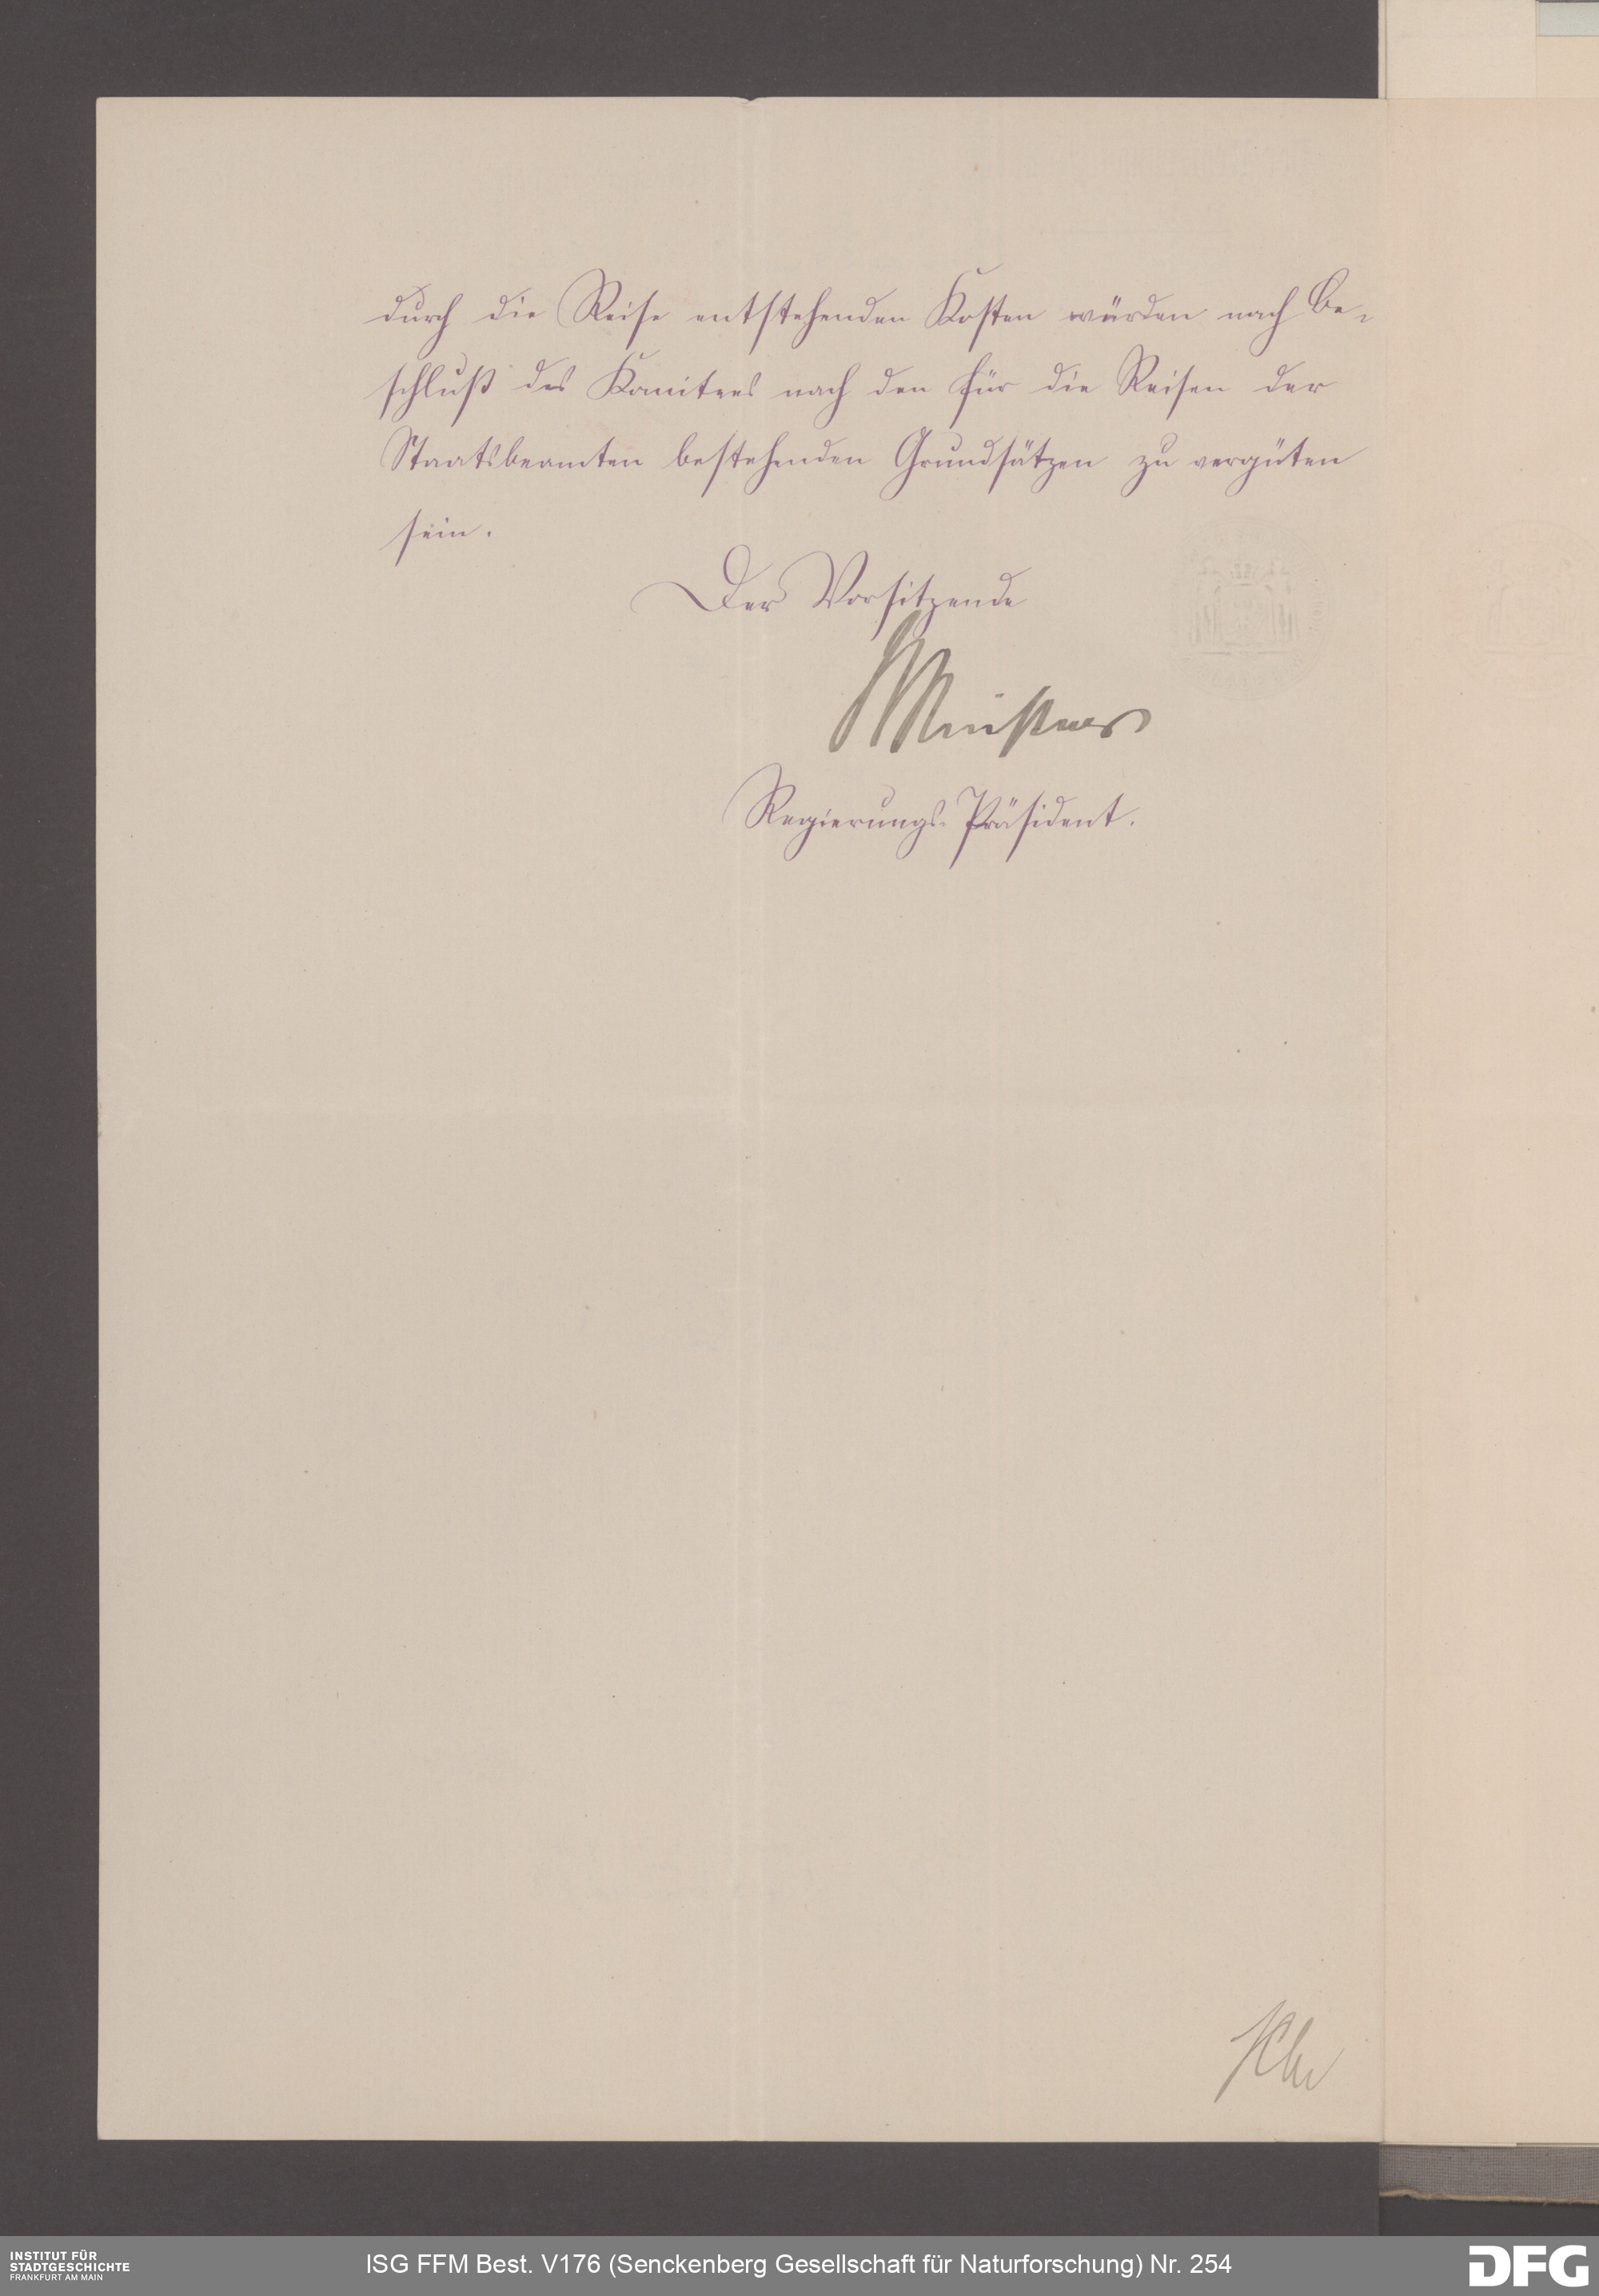 durch die Reise entstehenden Kosten würden nach Be-
schluß des Komitees nach den für die Reisen der
Staatsbeamten bestehenden Grundsätzen zu vergüten
sein.
Der Vorsitzende
Regierungs-Präsident.
INSTITUT FÜR
STADTGESCHICHTE
FRANKFURT AM MAIN
ISG FFM Best. V176 (Senckenberg Gesellschaft für Naturforschung) Nr. 254
DFG